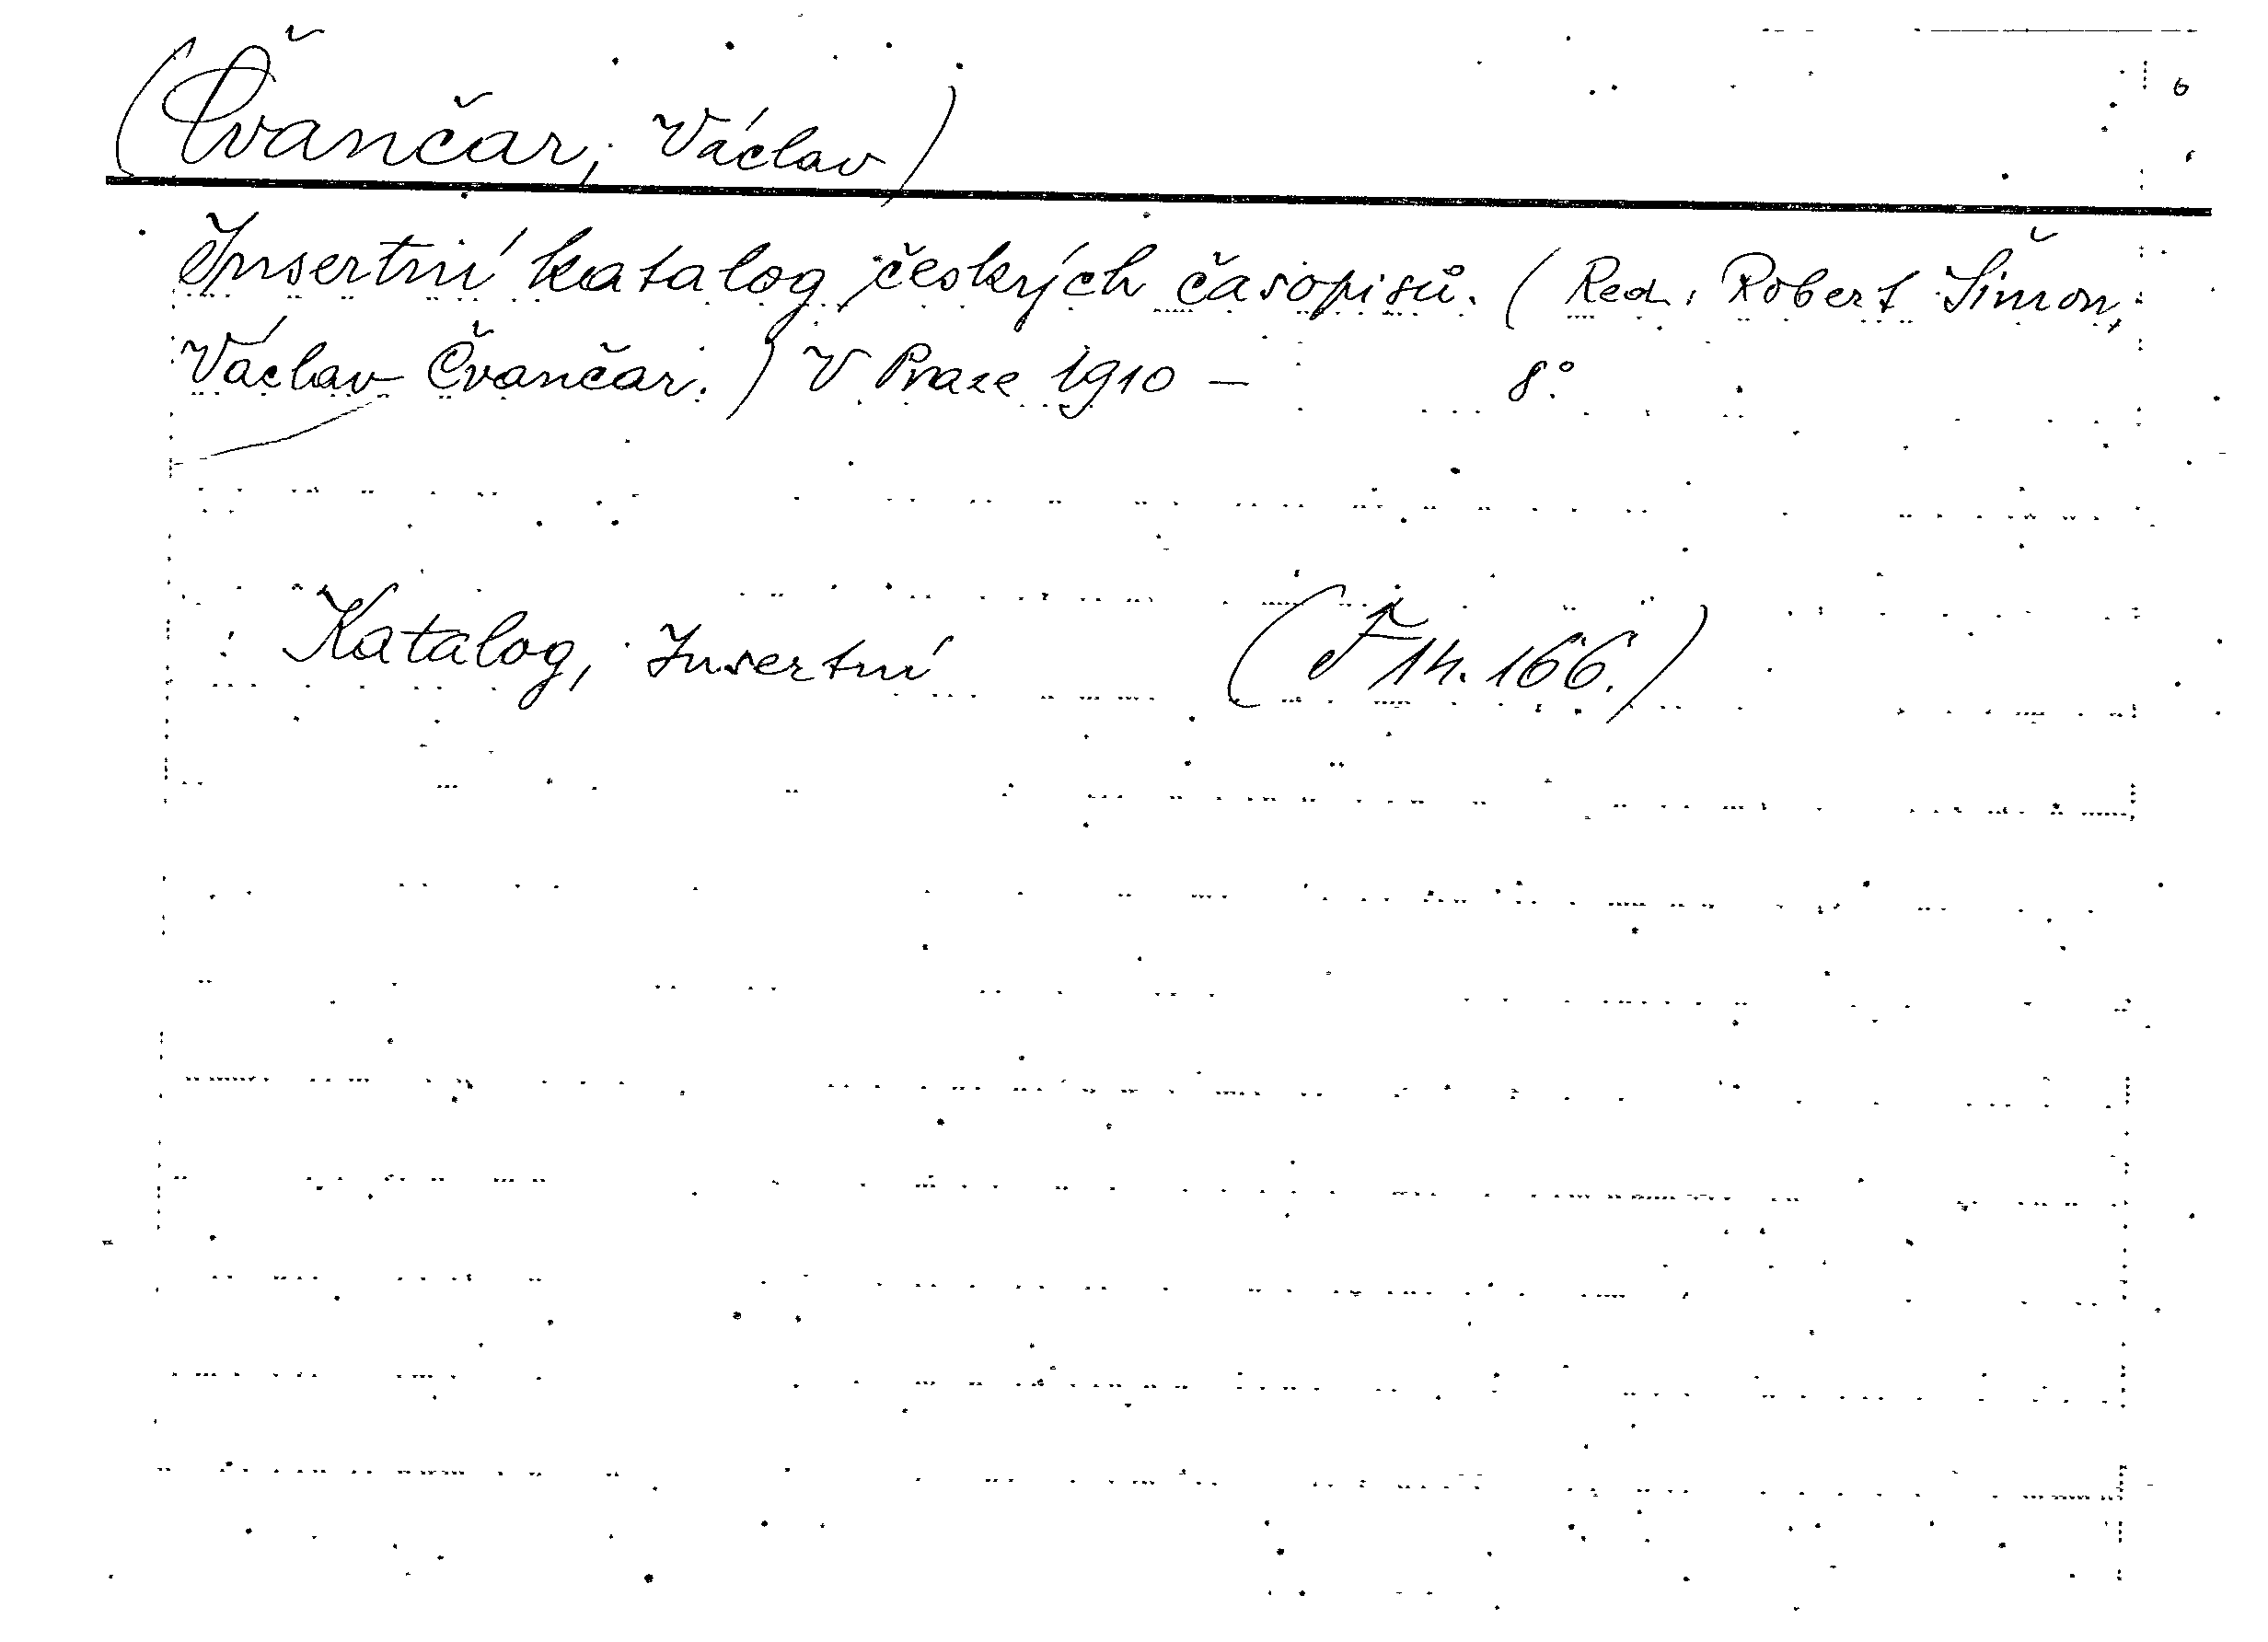 (Čvančar, Václav)
Insertní katalog českých časopisů. (Red. Robert Šimon,
Václav Čvančar.) V Praze 1910 – 8°.
Katalog, Insertní (F 14.166.)